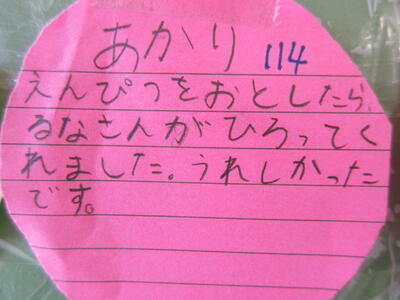 あかり 114
えんぴつをおとしたら、
るなさんがひろってく
れました。うれしかった
です。